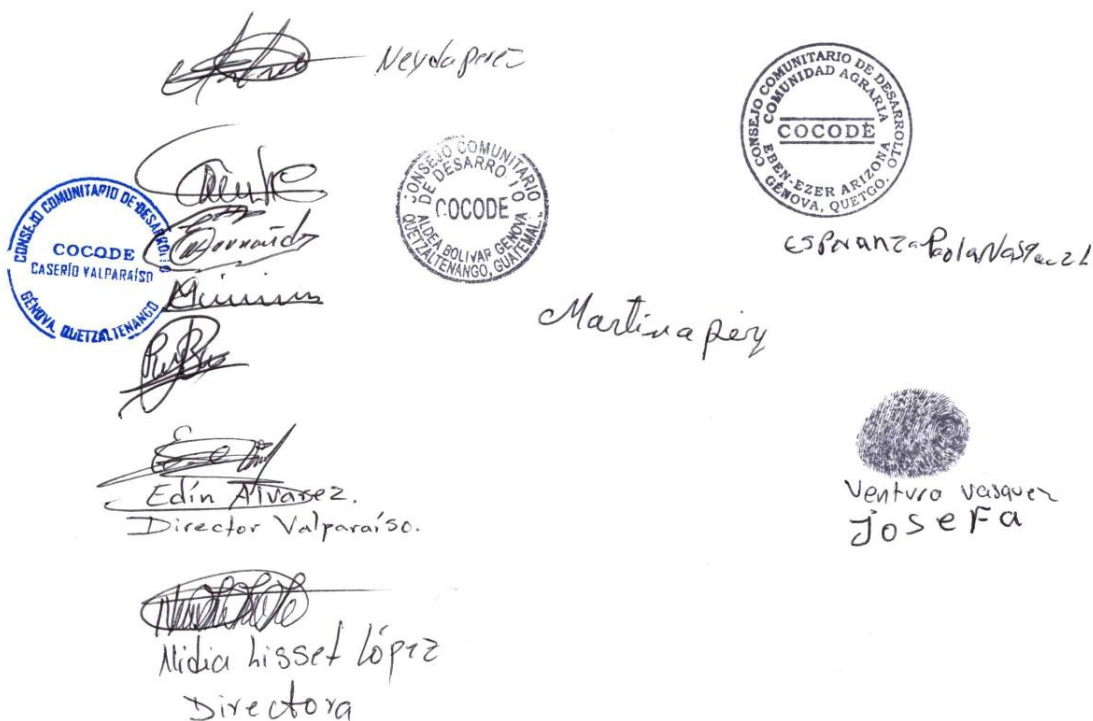 Neyda perez
CONSEJO COMUNITARIO DE DESARROLLO
COMUNIDAD AGRARIA
COCODE
EBEN-EZER ARIZONA
GÉNOVA, QUETGO.
CONSEJO COMUNITARIO
DE DESARROLLO
COCODE
ALDEA BOLIVAR GENOVA
QUETZALTENANGO, GUATEMALA
CONSEJO COMUNITARIO DE DESARROLLO
COCODE
CASERÍO VALPARAÍSO
GÉNOVA, QUETZALTENANGO
ESPeranza Paola
Martina
Edín Alvarez.
Director Valparaíso.
Venturo vasquez
JoSeFa
Nidia Lisset López
Directora